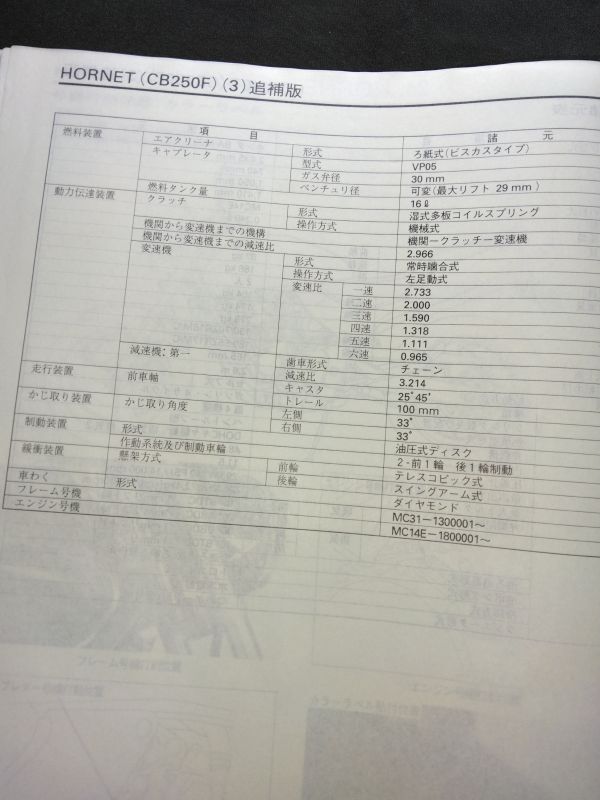 HORNET (CB250F) (3) 追補版
項 目 諸 元
燃料装置 エアクリーナ 形式 ろ紙式(ビスカスタイプ)
キャブレータ 型式 VP05
ガス弁径 30 mm
ベンチュリ径 可変(最大リフト 29 mm)
燃料タンク量 16ℓ
動力伝達装置 クラッチ 形式 湿式多板コイルスプリング
操作方式 機械式
機関から変速機までの機構 機関ークラッチー変速機
機関から変速機までの減速比 2.966
変速機 形式 常時噛合式
操作方式 左足動式
変速比 一速 2.733
二速 2.000
三速 1.590
四速 1.318
五速 1.111
六速 0.965
減速機:第一 歯車形式 チェーン
減速比 3.214
走行装置 前車軸 キャスタ 25°45′
トレール 100 mm
かじ取り装置 かじ取り角度 左側 33°
右側 33°
制動装置 形式 油圧式ディスク
作動系統及び制動車輪 2-前1輪 後1輪制動
緩衝装置 懸架方式 前輪 テレスコピック式
後輪 スイングアーム式
車わく 形式 ダイヤモンド
フレーム号機 MC31-1300001~
エンジン号機 MC14E-1800001~